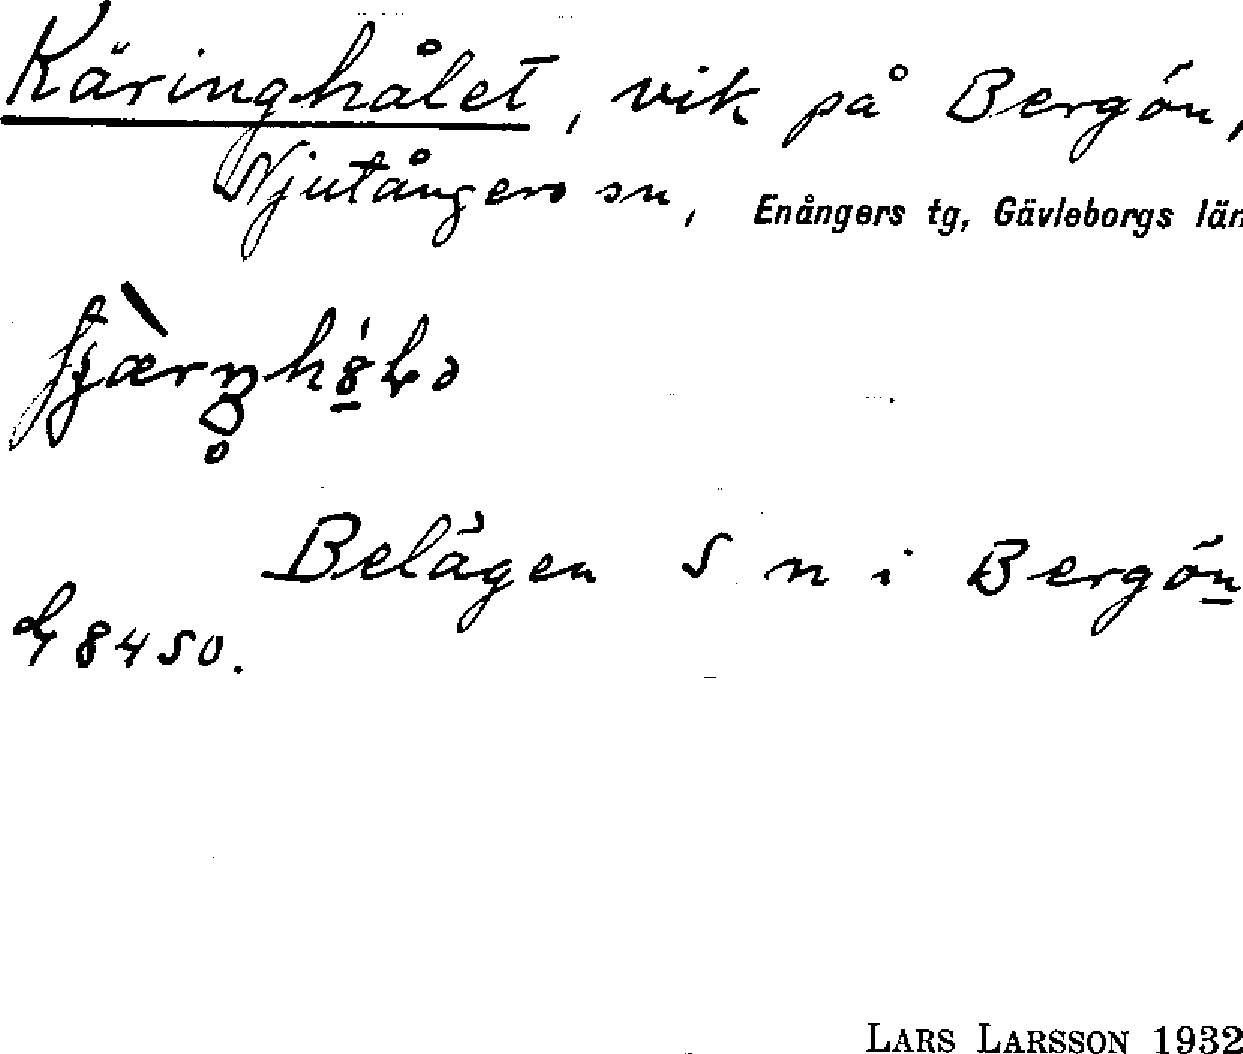 Käringhålet, vik på Bergön,
Njutångers sn, Enångers tg, Gävleborgs län
Belägen S n i Bergön
8450.
LARS LARSSON 1932